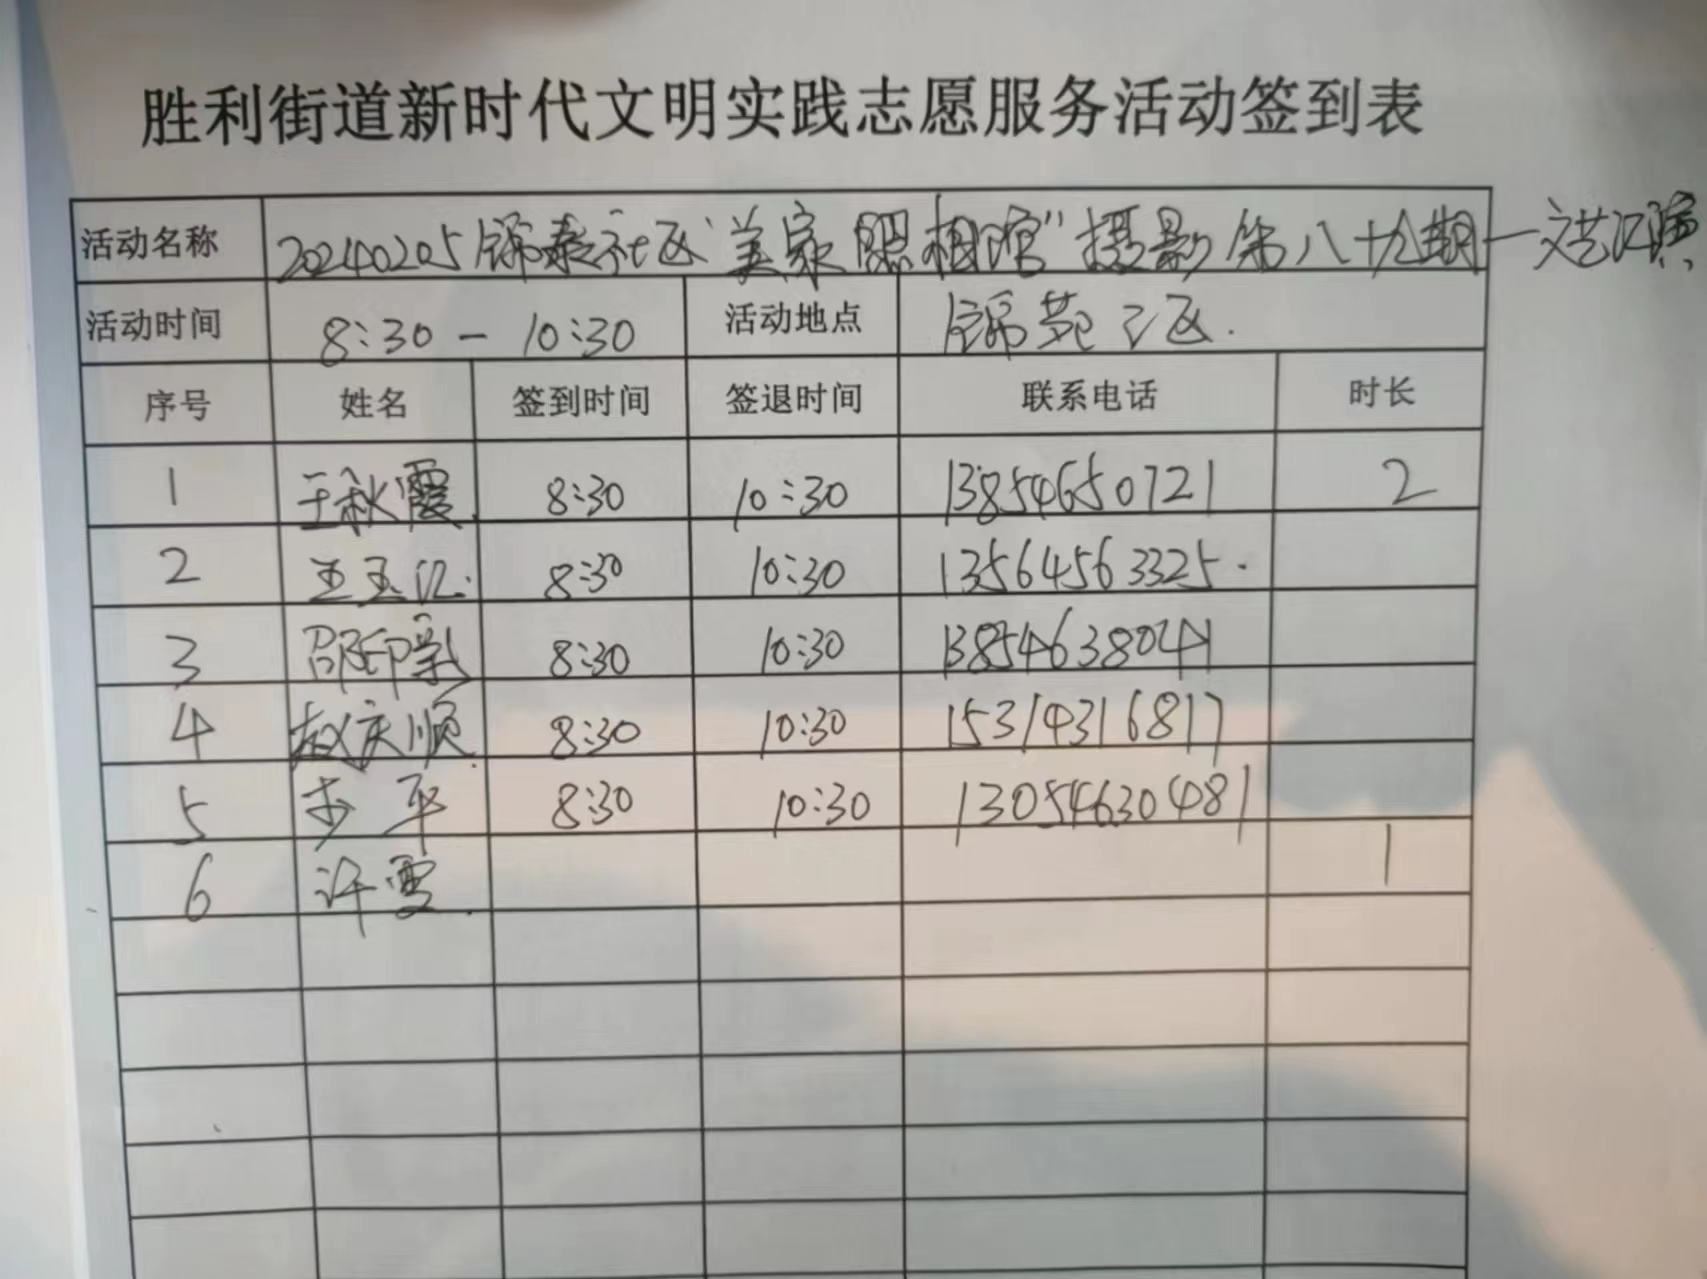 胜利街道新时代文明实践志愿服务活动签到表
活动名称 20240205锦泰社区"美家照相馆"摄影第八十九期—文艺汇演
活动时间 8:30 - 10:30 活动地点 锦苑三区.
序号 姓名 签到时间 签退时间 联系电话 时长
1 王秋霞 8:30 10:30 13854650721 2
2 王玉 8:30 10:30 13564563325
3 邵印 8:30 10:30
4 赵庆顺 8:30 10:30 15314316817
5 步平 8:30 10:30 13054630481
6 许雪 1